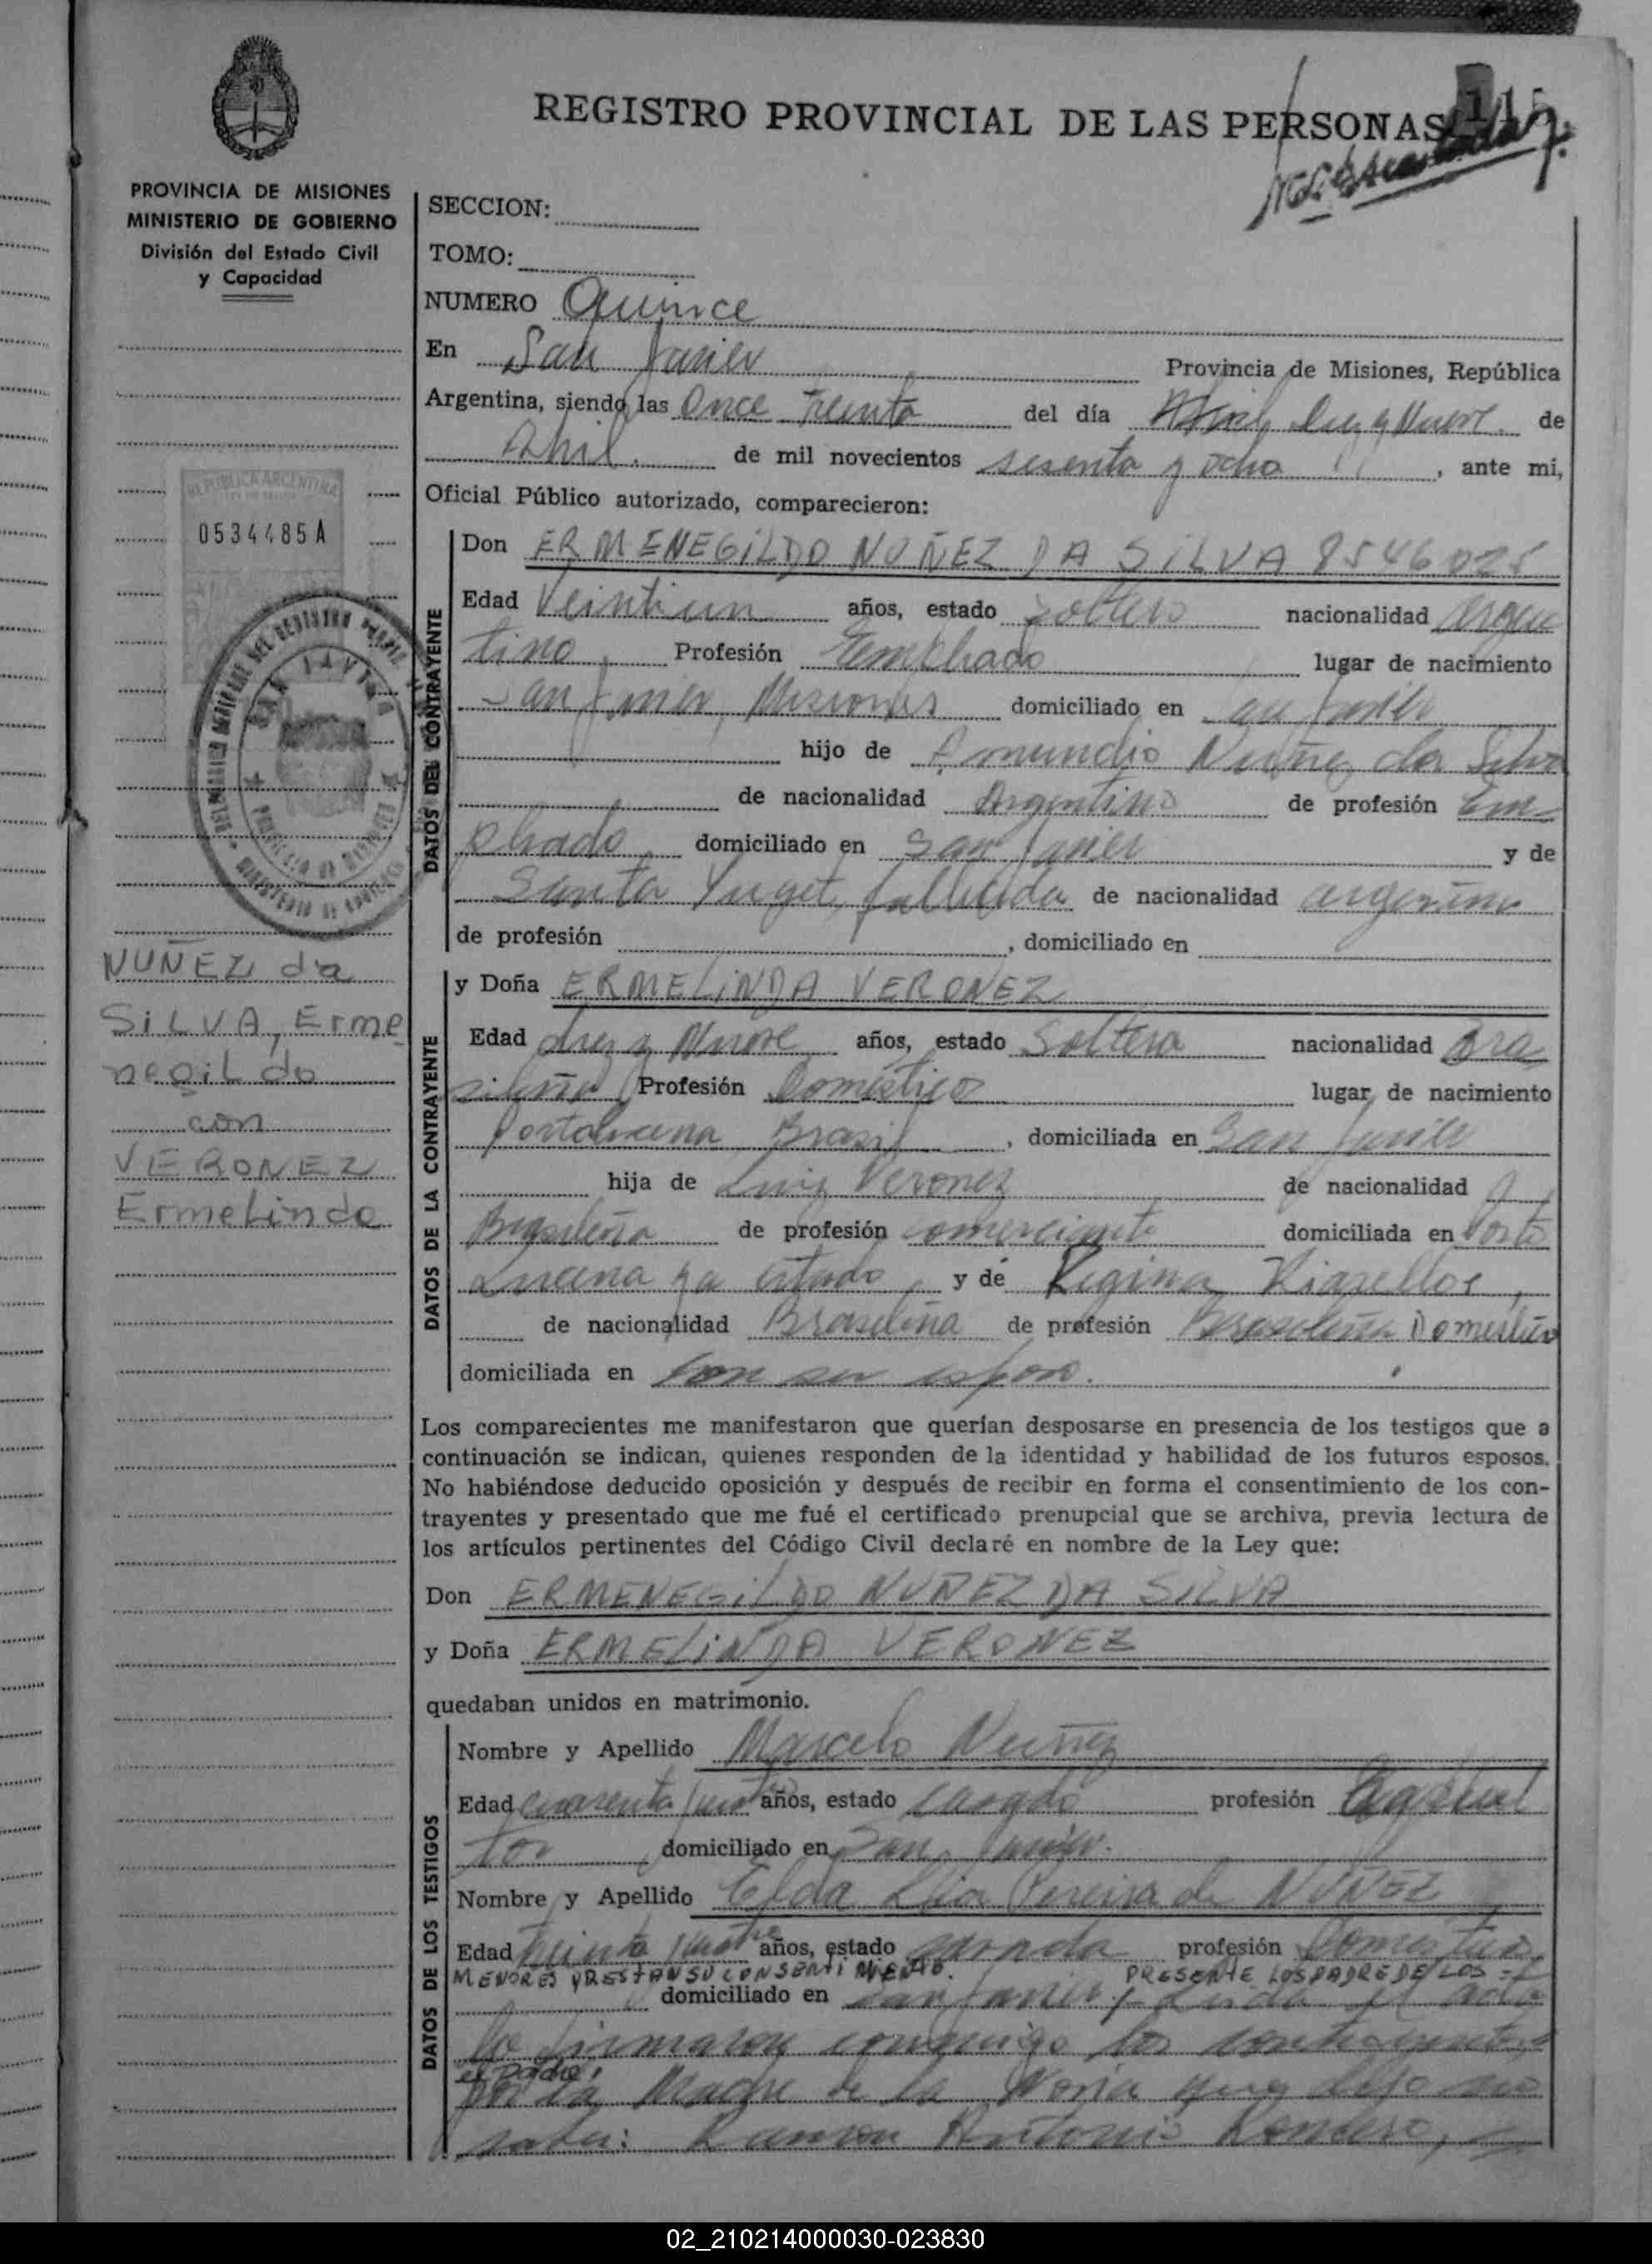 REGISTRO PROVINCIAL DE LAS PERSONAS
PROVINCIA DE MISIONES
MINISTERIO DE GOBIERNO
División del Estado Civil
y Capacidad
REPUBLICA ARGENTINA
0534485A
NUÑEZ da
SILVA, Erme
negildo
con
VERONEZ
Ermelinda
SECCION:
TOMO:
NUMERO Quince
En San Javier Provincia de Misiones, República
Argentina, siendo las Once Treinta del día diez y Nueve de
Abril de mil novecientos sesenta y ocho, ante mi,
Oficial Público autorizado, comparecieron:
DATOS DEL CONTRAYENTE
Don ERMENEGILDO NUÑEZ DA SILVA 8546025
Edad Veintiun años, estado soltero nacionalidad argen
tino Profesión Empleado lugar de nacimiento
San Javier, Misiones domiciliado en San Javier
hijo de Nuñez da Silva
de nacionalidad Argentino de profesión Em-
pleado domiciliado en San Javier y de
Santa fallecida de nacionalidad argentina
de profesión , domiciliado en
DATOS DE LA CONTRAYENTE
y Doña ERMELINDA VERONEZ
Edad diez y Nueve años, estado Soltera nacionalidad Bra
sileña Profesión Domestico lugar de nacimiento
Portolucena Brasil, domiciliada en San Javier
hija de Luiz Veronez de nacionalidad
Brasileña de profesión comerciante domiciliada en Porto
Lucena ya citado y de Regina
de nacionalidad Brasileña de profesión Domestico
domiciliada en con su esposo.
Los comparecientes me manifestaron que querían desposarse en presencia de los testigos que a
continuación se indican, quienes responden de la identidad y habilidad de los futuros esposos.
No habiéndose deducido oposición y después de recibir en forma el consentimiento de los con-
trayentes y presentado que me fué el certificado prenupcial que se archiva, previa lectura de
los artículos pertinentes del Código Civil declaré en nombre de la Ley que:
Don ERMENEGILDO NUÑEZ DA SILVA
y Doña ERMELINDA VERONEZ
quedaban unidos en matrimonio.
DATOS DE LOS TESTIGOS
Nombre y Apellido Marcelo Nuñez
Edad cuarenta años, estado casado profesión Agricul
tor domiciliado en San Javier.
Nombre y Apellido Elda Lia Pereira de NUÑEZ
Edad treinta años, estado casada profesión Domestica
MENORES PRESTAN SU CONSENTIMIENTO. PRESENTE LOS PADRE DE LOS
domiciliado en San Javier, Leida el acta
la firmaron conmigo los contrayentes
el padre
por la Madre de la Novia que dijo no
saber: Ramon Antonio
02_210214000030-023830